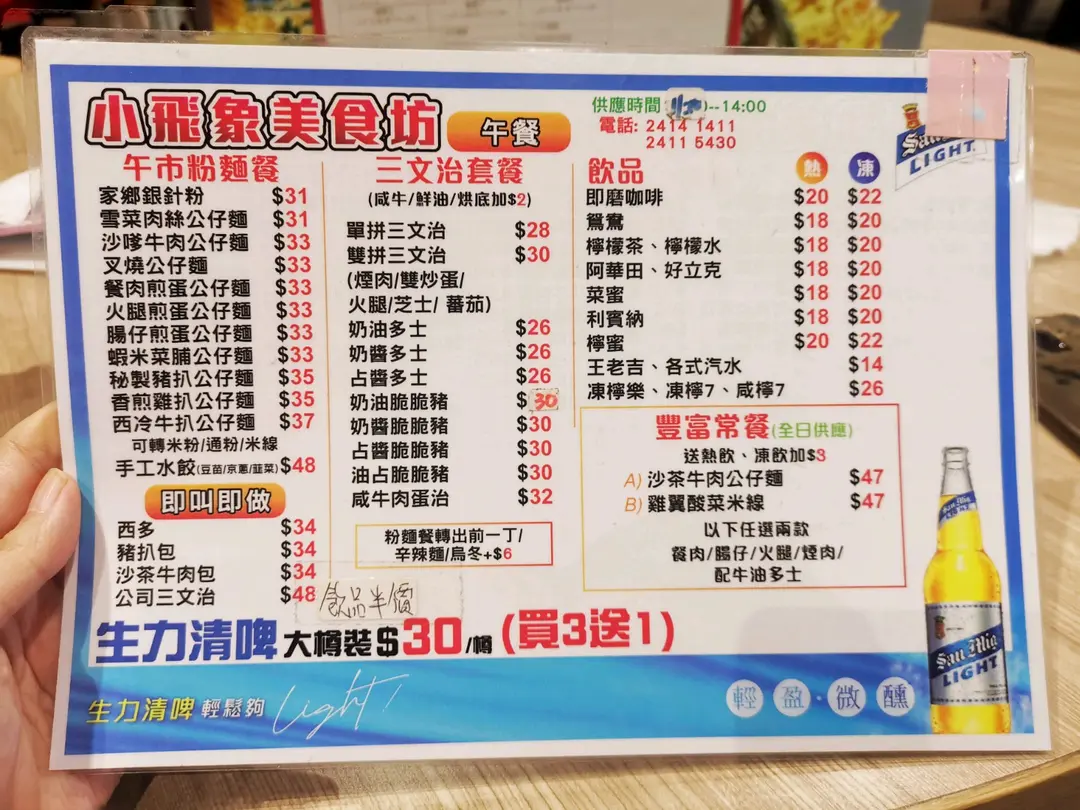 小飛象美食坊 午餐
供應時間 11:00--14:00
電話: 2414 1411
2411 5430
San Mig
LIGHT
午市粉麵餐
家鄉銀針粉 $31
雪菜肉絲公仔麵 $31
沙嗲牛肉公仔麵 $33
叉燒公仔麵 $33
餐肉煎蛋公仔麵 $33
火腿煎蛋公仔麵 $33
腸仔煎蛋公仔麵 $33
蝦米菜脯公仔麵 $33
秘製豬扒公仔麵 $35
香煎雞扒公仔麵 $35
西冷牛扒公仔麵 $37
可轉米粉/通粉/米線
手工水餃(豆苗/京蔥/韮菜) $48
即叫即做
西多 $34
豬扒包 $34
沙茶牛肉包 $34
公司三文治 $48
飲品半價
三文治套餐
(咸牛/鮮油/烘底加$2)
單拼三文治 $28
雙拼三文治 $30
(煙肉/雙炒蛋/
火腿/芝士/ 蕃茄)
奶油多士 $26
奶醬多士 $26
占醬多士 $26
奶油脆脆豬 $30
奶醬脆脆豬 $30
占醬脆脆豬 $30
油占脆脆豬 $30
咸牛肉蛋治 $32
粉麵餐轉出前一丁/
辛辣麵/烏冬+$6
飲品 熱 凍
即磨咖啡 $20 $22
鴛鴦 $18 $20
檸檬茶、檸檬水 $18 $20
阿華田、好立克 $18 $20
菜蜜 $18 $20
利賓納 $18 $20
檸蜜 $20 $22
王老吉、各式汽水 $14
凍檸樂、凍檸7、咸檸7 $26
豐富常餐(全日供應)
送熱飲、凍飲加$3
A) 沙茶牛肉公仔麵 $47
B) 雞翼酸菜米線 $47
以下任選兩款
餐肉/腸仔/火腿/煙肉/
配牛油多士
生力清啤 大樽裝$30/樽 (買3送1)
生力清啤 輕鬆夠 Light!
輕盈·微醺
San Mig
LIGHT